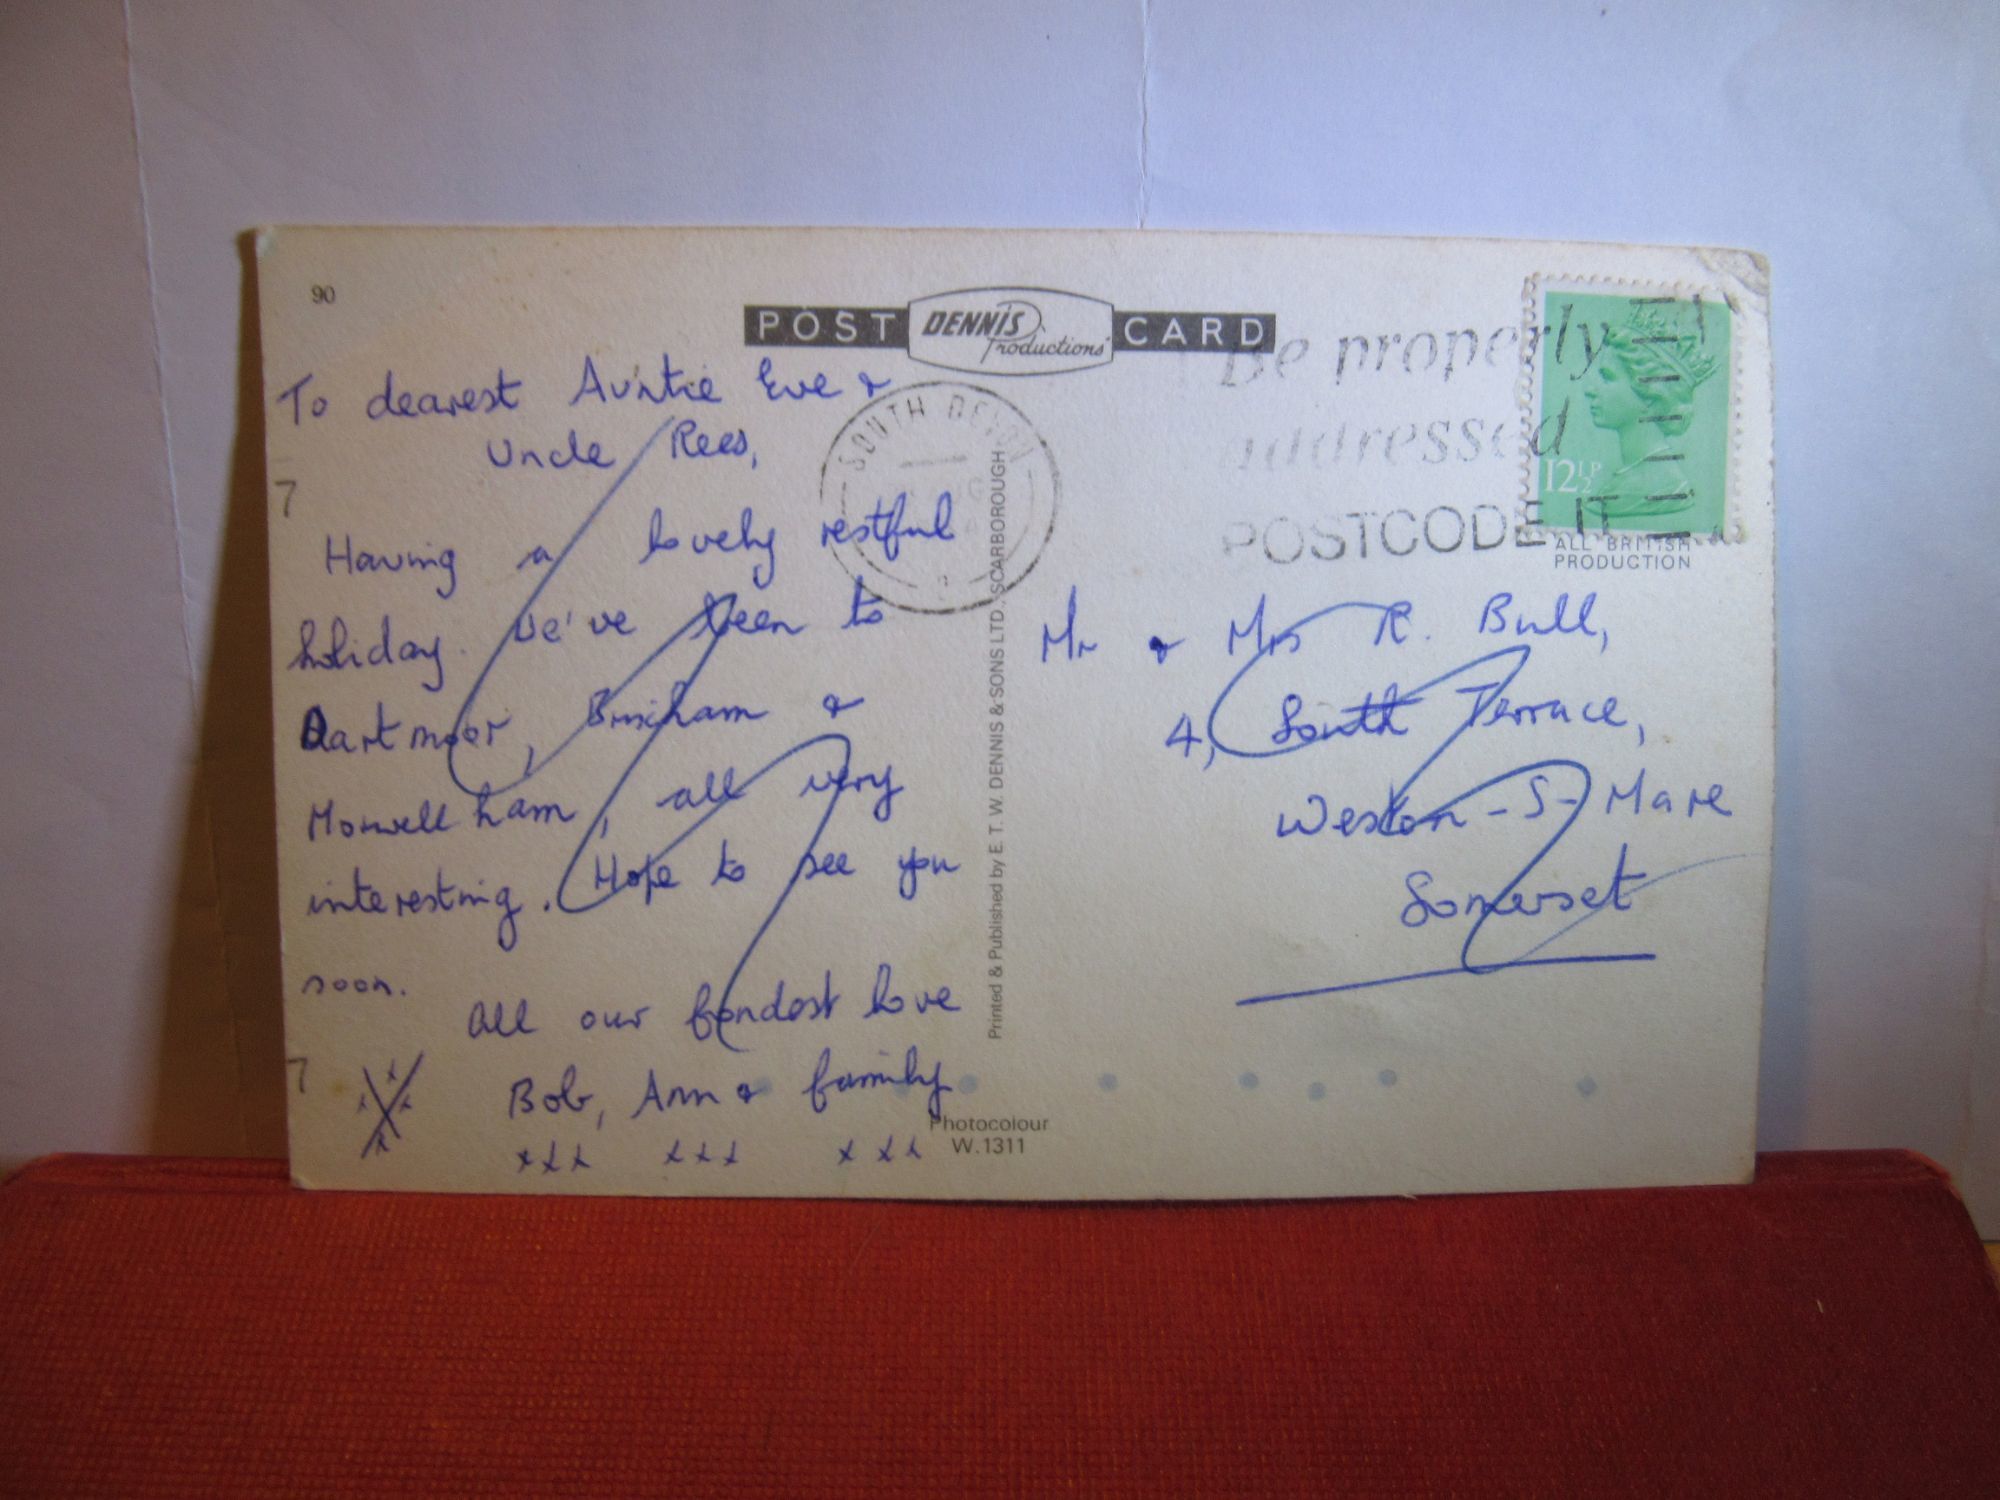 90
POST DENNIS Productions CARD
To dearest Auntie Eve &
Uncle Rees,
7
Having a lovely restful
holiday. We've been to
Dartmoor, Brixham &
Morwellham, all very
interesting. Hope to see you
soon.
All our fondest love
7
Bob, Ann & family
xxx xxx xxx
SOUTH DEVON
Be properly
addressed
POSTCODE IT
12½P
ALL BRITISH
PRODUCTION
Mr & Mrs R. Bull,
4, South Terrace,
Weston-S-Mare
Somerset
Printed & Published by E. T. W. DENNIS & SONS LTD., SCARBOROUGH
Photocolour
W.1311